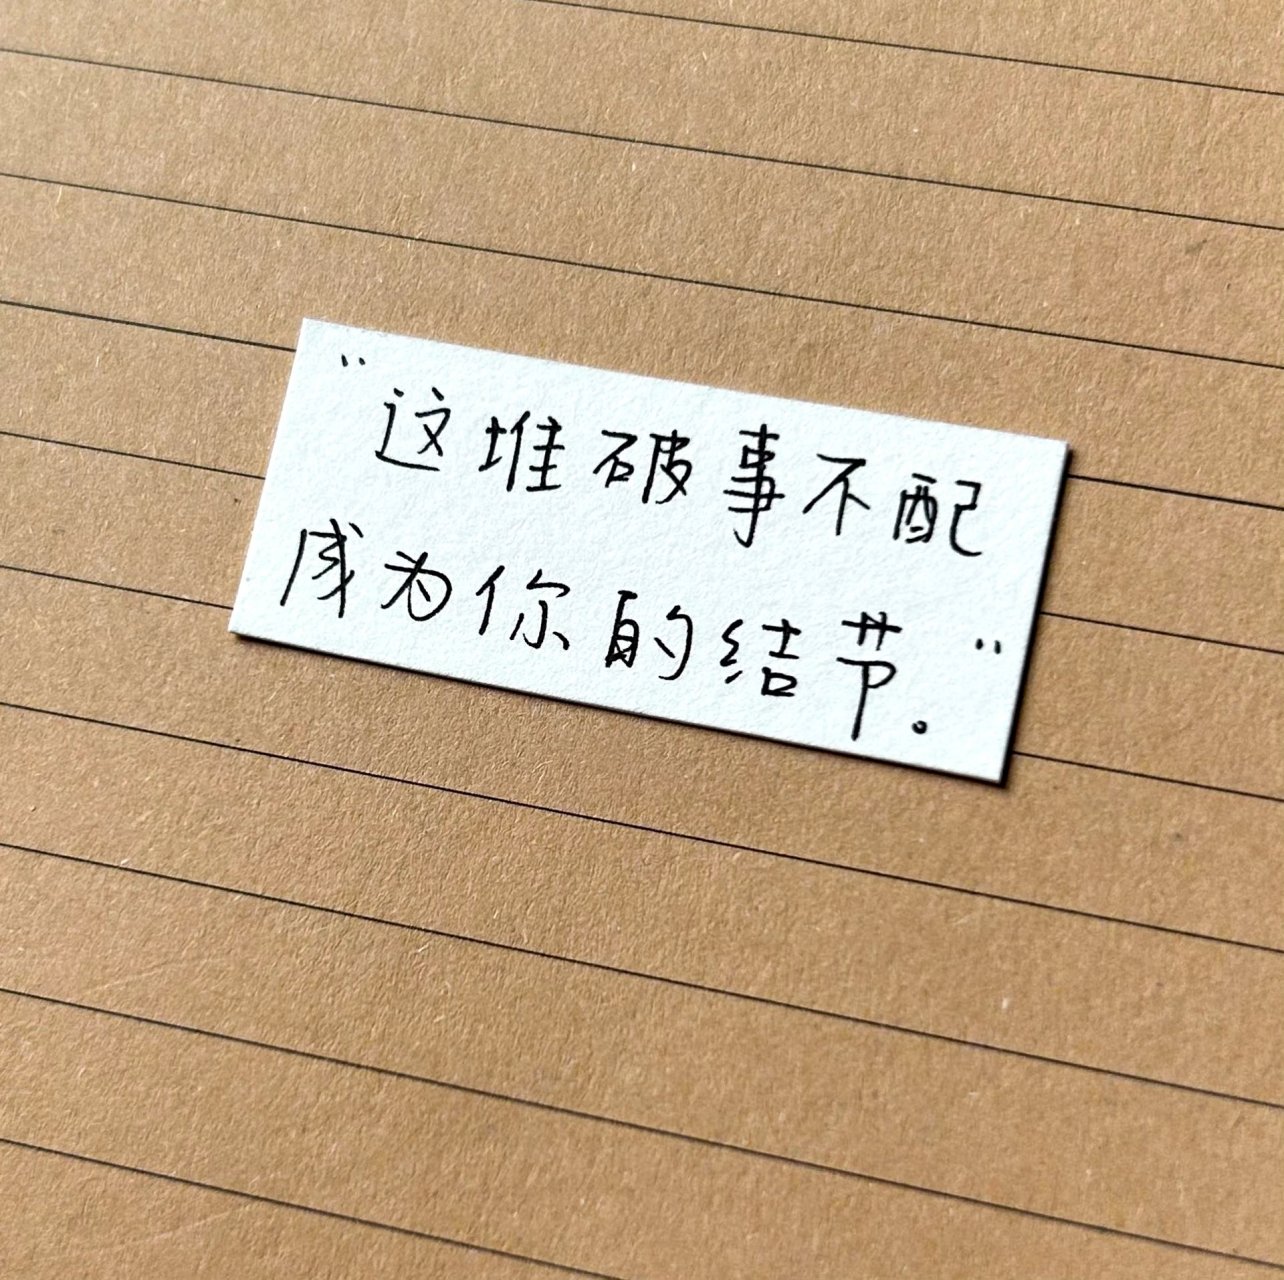 "这堆破事不配
成为你的结节。"